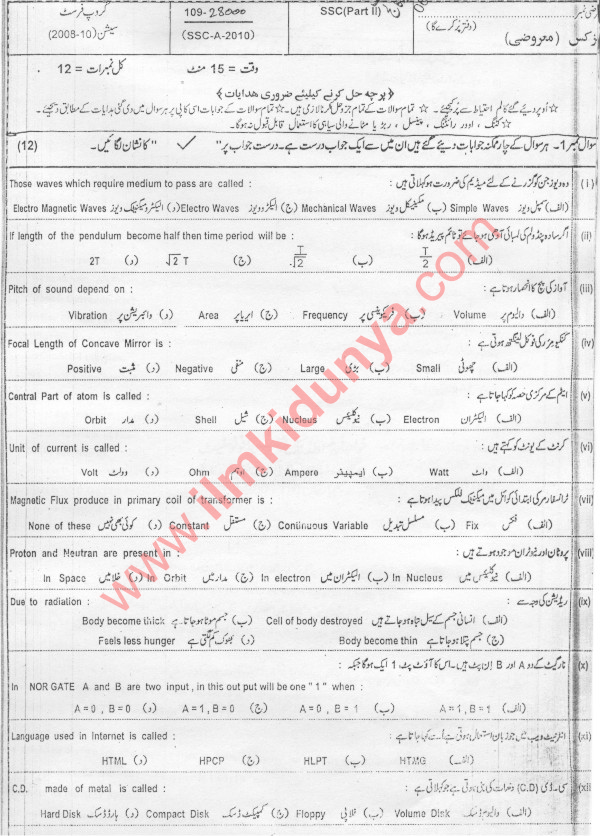 گروپ فرسٹ
سیشن (2008-10)
109-28000
(SSC-A-2010)
SSC(Part II)
(دفتر پُر کرے گا)
(معروضی)
کل نمبرات = 12 وقت = 15 منٹ
﴿پرچہ حل کرنے کیلیئے ضروری ھدایات﴾
سوال نمبر 1۔ ہر سوال کے چار ممکنہ جوابات دیئے گئے ہیں ان میں سے ایک جواب درست ہے۔ درست جواب پر " ✓ " کا نشان لگائیں۔ (12)
(i) وہ ویوز جن کو گزرنے کے لئے میڈیم کی ضرورت ہو کہلاتی ہیں:
Those waves which require medium to pass are called :
(الف) سمپل ویوز Simple Waves (ب) مکینیکل ویوز Mechanical Waves (ج) الیکٹرو ویوز Electro Waves (د) الیکٹرو میگنیٹک ویوز Electro Magnetic Waves
(ii) اگر سادہ پنڈولم کی لمبائی آدھی ہو جائے تو ٹائم پیریڈ ہو گا:
If length of the pendulum become half then time period will be :
(الف) T/2 (ب) T/√2 (ج) √2 T (د) 2T
(iii) آواز کی پچ کا انحصار ہوتا ہے:
Pitch of sound depend on :
(الف) والیوم پر Volume (ب) فریکوئنسی پر Frequency (ج) ایریا پر Area (د) وائبریشن پر Vibration
(iv) کنکیو مرر کی فوکل لینگتھ ہوتی ہے:
Focal Length of Concave Mirror is :
(الف) چھوٹی Small (ب) بڑی Large (ج) منفی Negative (د) مثبت Positive
(v) ایٹم کے مرکزی حصہ کو کہا جاتا ہے:
Central Part of atom is called :
(الف) الیکٹران Electron (ب) نیوکلیئس Nucleus (ج) شیل Shell (د) مدار Orbit
(vi) کرنٹ کے یونٹ کو کہتے ہیں:
Unit of current is called :
(الف) واٹ Watt (ب) ایمپیئر Ampere (ج) اوہم Ohm (د) وولٹ Volt
(vii) ٹرانسفارمر کی ابتدائی کوائل میں میگنیٹک فلکس پیدا ہوتا ہے:
Magnetic Flux produce in primary coil of transformer is :
(الف) فکس Fix (ب) مسلسل تبدیل Continuous Variable (ج) مستقل Constant (د) کوئی بھی نہیں None of these
(viii) پروٹان اور نیوٹران موجود ہوتے ہیں:
Proton and Neutran are present in :
(الف) نیوکلیئس میں In Nucleus (ب) الیکٹران میں In electron (ج) مدار میں In Orbit (د) خلا میں In Space
(ix) ریڈیشن کی وجہ سے:
Due to radiation :
(الف) انسانی جسم کے سیل تباہ ہو جاتے ہیں Cell of body destroyed (ب) جسم موٹا ہو جاتا ہے Body become thick
(ج) جسم پتلا ہو جاتا ہے Body become thin (د) بھوک کم لگتی ہے Feels less hunger
(x) نار گیٹ کے دو A اور B اِن پٹ ہیں۔ اس کا آؤٹ پٹ 1 ایک ہو گا جبکہ:
In NOR GATE A and B are two input, in this out put will be one "1" when :
(الف) A=1, B=1 (ب) A=0, B=1 (ج) A=1, B=0 (د) A=0, B=0
(xi) انٹرنیٹ ویب میں جو زبان استعمال ہوتی ہے اسے کہا جاتا ہے:
Language used in Internet is called :
(الف) HTMG (ب) HLPT (ج) HPCP (د) HTML
(xii) سی۔ڈی (C.D) دھات کی بنی ہوتی ہے جو کہلاتی ہے:
C.D. made of metal is called :
(الف) والیوم ڈسک Volume Disk (ب) فلاپی Floppy (ج) کمپیکٹ ڈسک Compact Disk (د) ہارڈ ڈسک Hard Disk
www.ilmkidunya.com